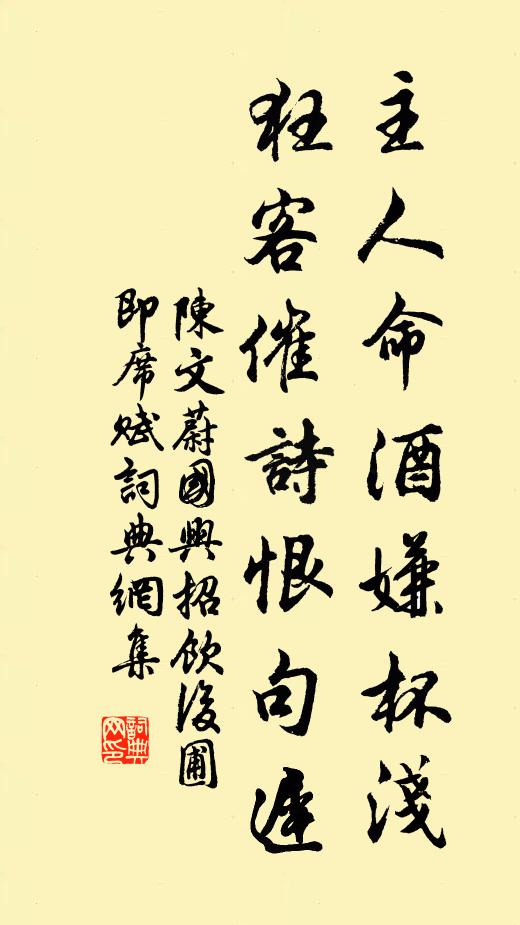 主人命酒嫌杯淺
狂客催詩恨句遲
陳文蔚國興招飲後圃
即席賦詞典網集
詞典網印